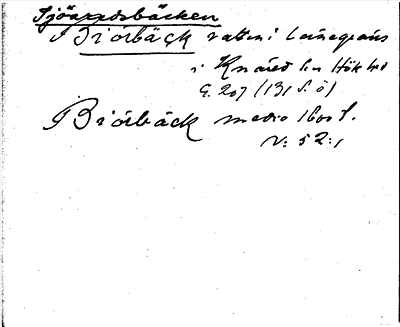 Sjöaredsbäcken
Biörbäck vatten i Länegräns
i Knäred sn Hök hd
G. 207 (131 s. ö)
Biörbäck medio 1600 t.
V: 52:1